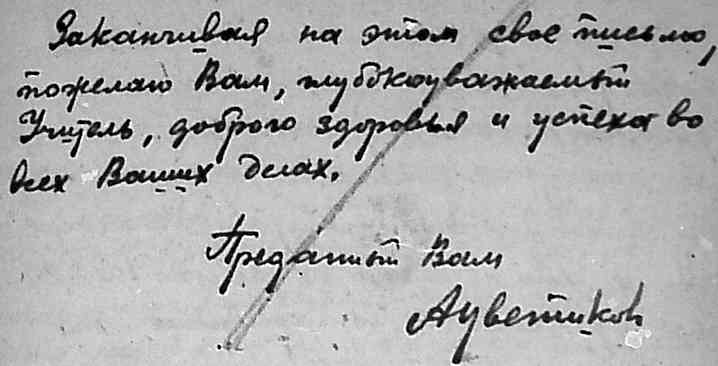 Заканчивая на этом свое письмо,
пожелаю Вам, глубокоуважаемый
Учитель, доброго здоровья и успеха во
всех Ваших делах.
Преданный Вам
АЦветиков